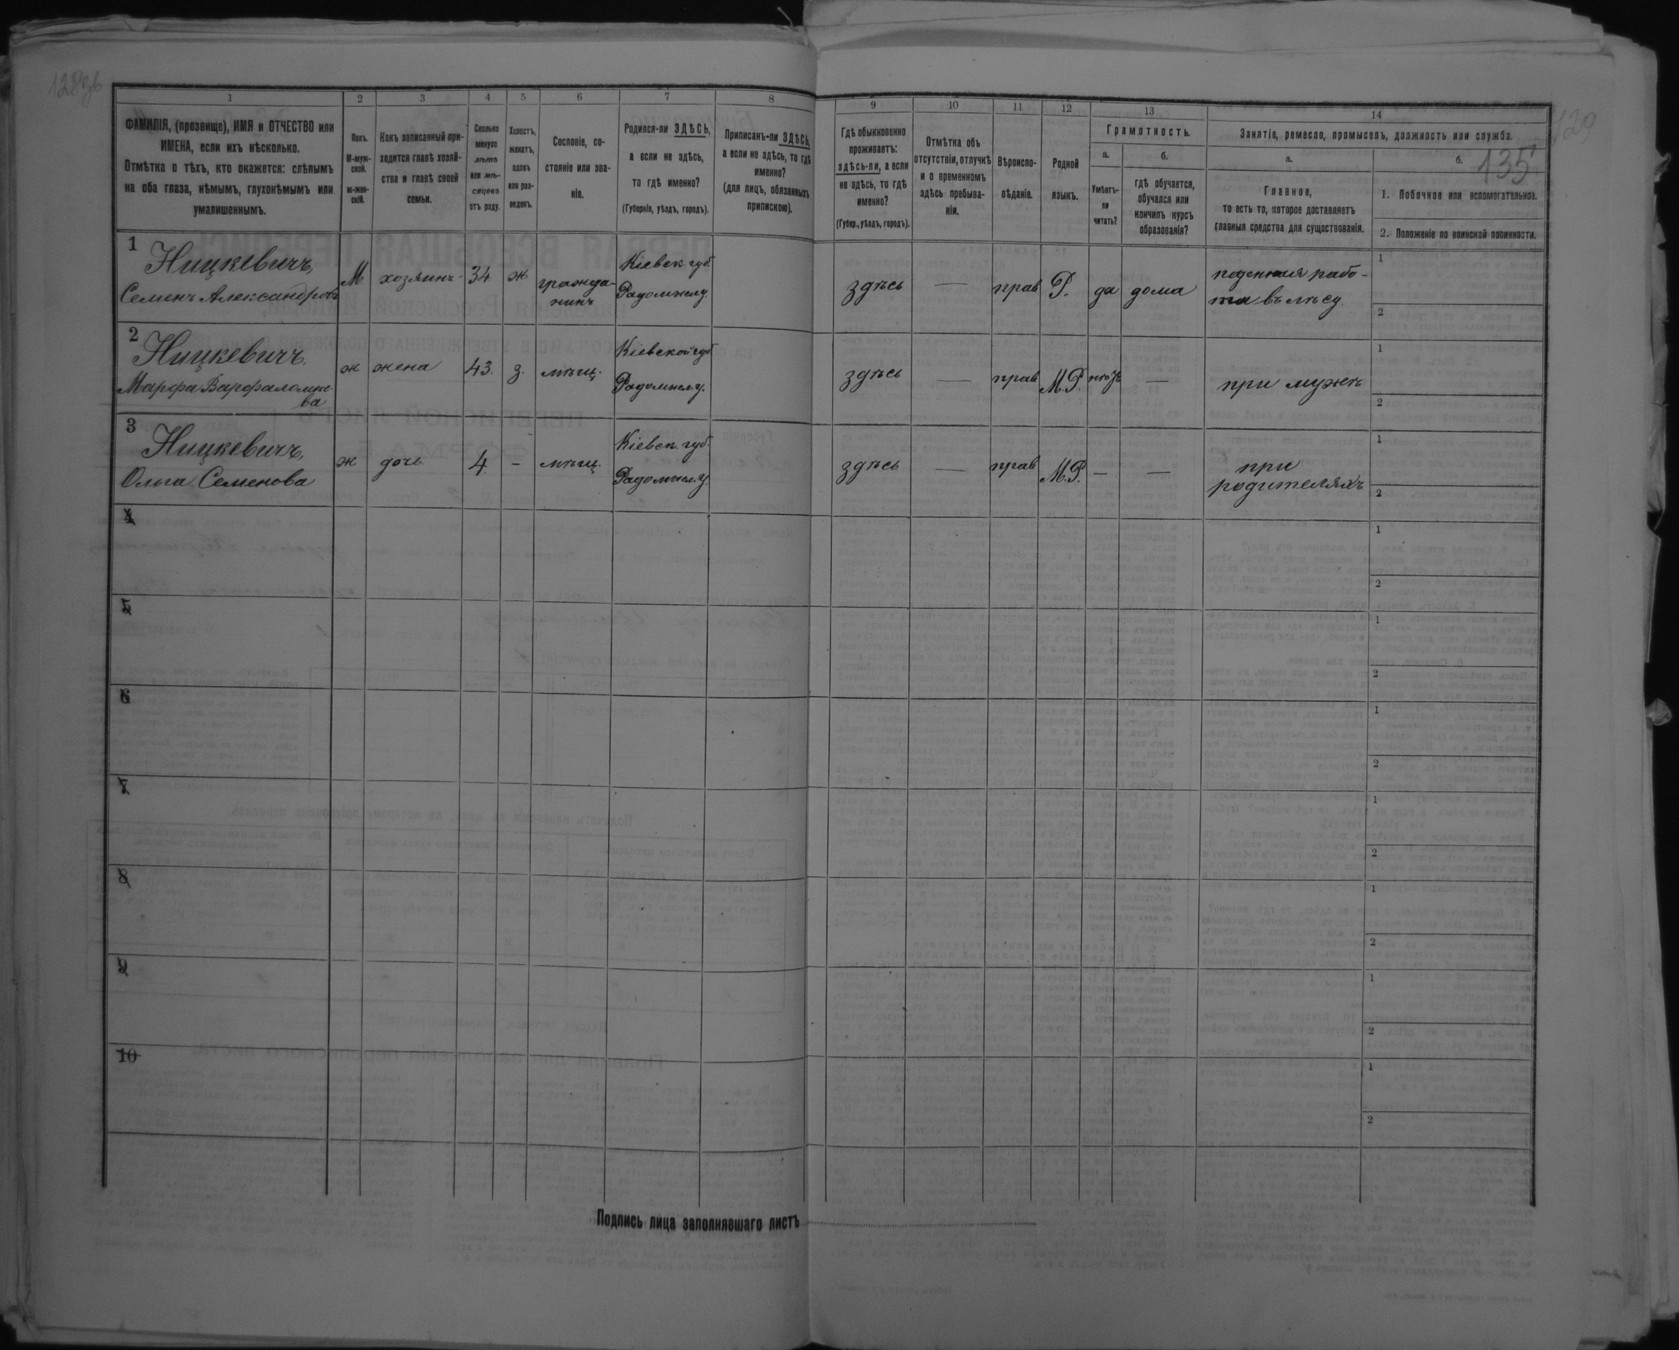 128об
129
135
1
2
3
4
5
6
7
8
9
10
11
12
13
14
ФАМИЛІЯ, (прозвище), ИМЯ и ОТЧЕСТВО или
ИМЕНА, если ихъ нѣсколько.
Отмѣтка о тѣхъ, кто окажется: слѣпымъ
на оба глаза, нѣмымъ, глухонѣмымъ или
умалишеннымъ.
Полъ.
М-муж-
ской.
ж-жен-
скій.
Какъ записанный при-
ходится главѣ хозяй-
ства и главѣ своей
семьи.
Сколько
минуло
лѣтъ
или мѣ-
сяцевъ
отъ роду.
Холостъ,
женатъ,
вдовъ
или раз-
веденъ.
Сословіе, со-
стояніе или зва-
ніе.
Родился-ли ЗДѢСЬ,
а если не здѣсь,
то гдѣ именно?
(Губернія, уѣздъ, городъ).
Приписанъ-ли ЗДѢСЬ,
а если не здѣсь, то гдѣ
именно?
(для лицъ, обязанныхъ
припискою).
Гдѣ обыкновенно
проживаетъ:
здѣсь-ли, а если
не здѣсь, то гдѣ
именно?
(Губер., уѣздъ, городъ).
Отмѣтка объ
отсутствіи, отлучкѣ
и о временномъ
здѣсь пребыва-
ніи.
Вѣроиспо-
вѣданіе.
Родной
языкъ.
Грамотность.
а.
Умѣетъ-
ли
читать?
б.
гдѣ обучается,
обучался или
кончилъ курсъ
образованія?
Занятіе, ремесло, промыселъ, должность или служба.
а.
Главное,
то есть то, которое доставляетъ
главныя средства для существованія.
б.
1. Побочное или вспомогательное.
2. Положеніе по воинской повинности.
1
Ницкевичъ,
Семенъ Александровъ
М
хозяинъ
34
ж
гражда-
нинъ
Кіевск. губ
Радомысл у.
здѣсь
—
прав
Р.
да
дома
поденная рабо-
та въ лѣсу
1
2
2
Ницкевичъ.
Марфа Варфаломее-
ва
ж
жена
43.
з.
мѣщ.
Кіевской губ
Радомысл. у.
здѣсь
—
прав
М.Р.
нѣтъ
—
при мужѣ
1
2
3
Ницкевичъ,
Ольга Семенова
ж
дочь
4
-
мѣщ.
Кіевск. губ.
Радомысл. у.
здѣсь
—
прав
М.Р.
—
—
при
родителяхъ
1
2
4
1
2
5
1
2
6
1
2
7
1
2
8
1
2
9
1
2
10
1
2
Подпись лица заполнявшаго листъ